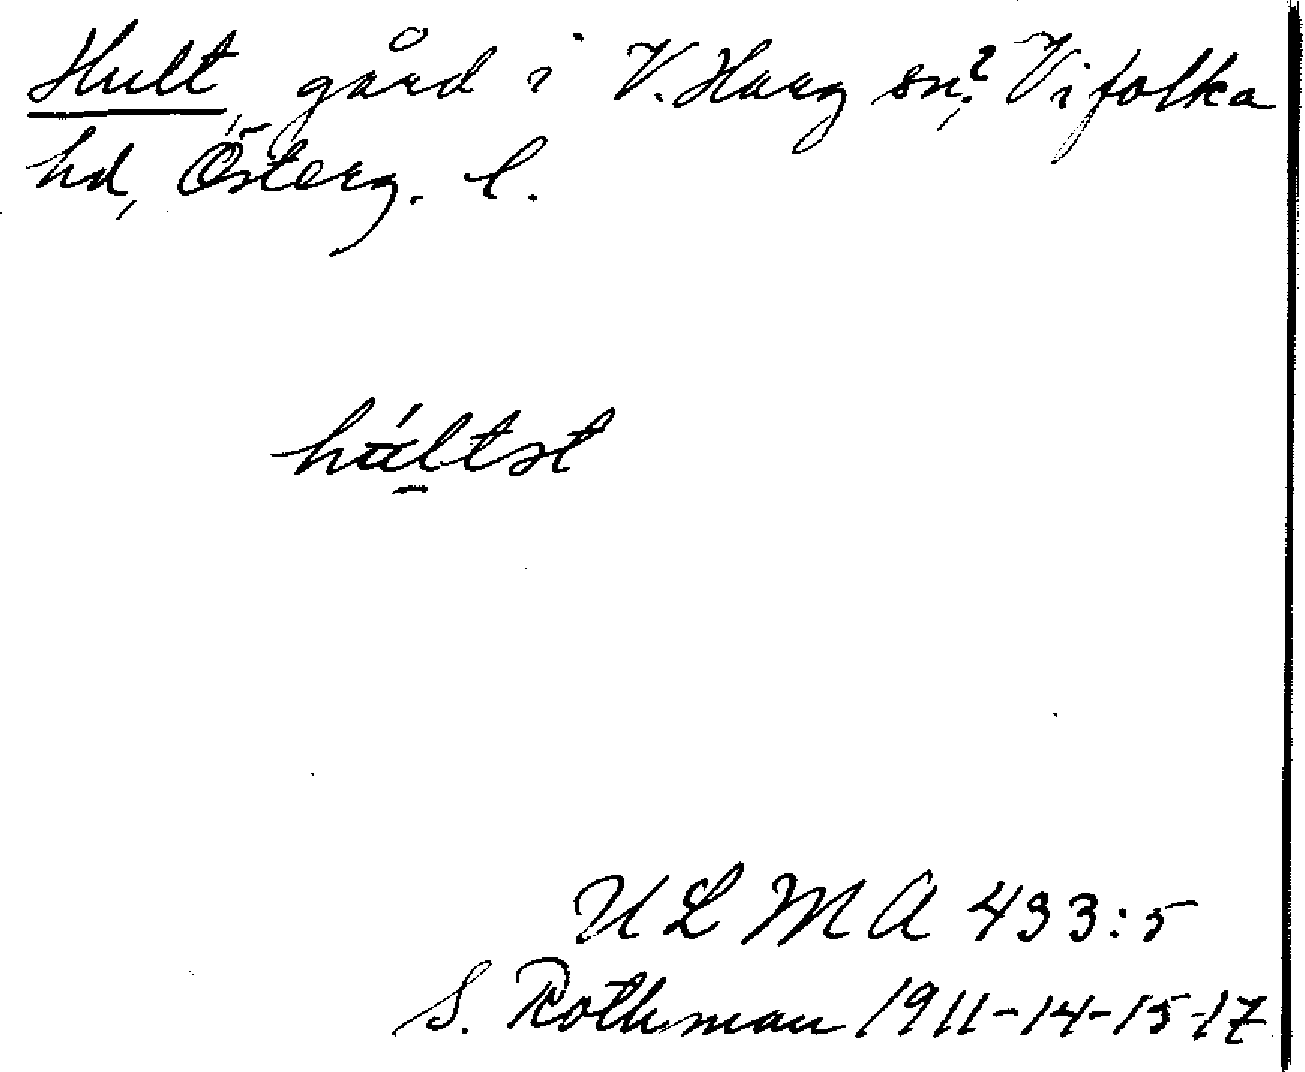 Hult, gård i V. Harg sn?, Vifolka
hd, Österg. l.
húltst
ULMA 433:5
S. Rothman 1911-14-15-17